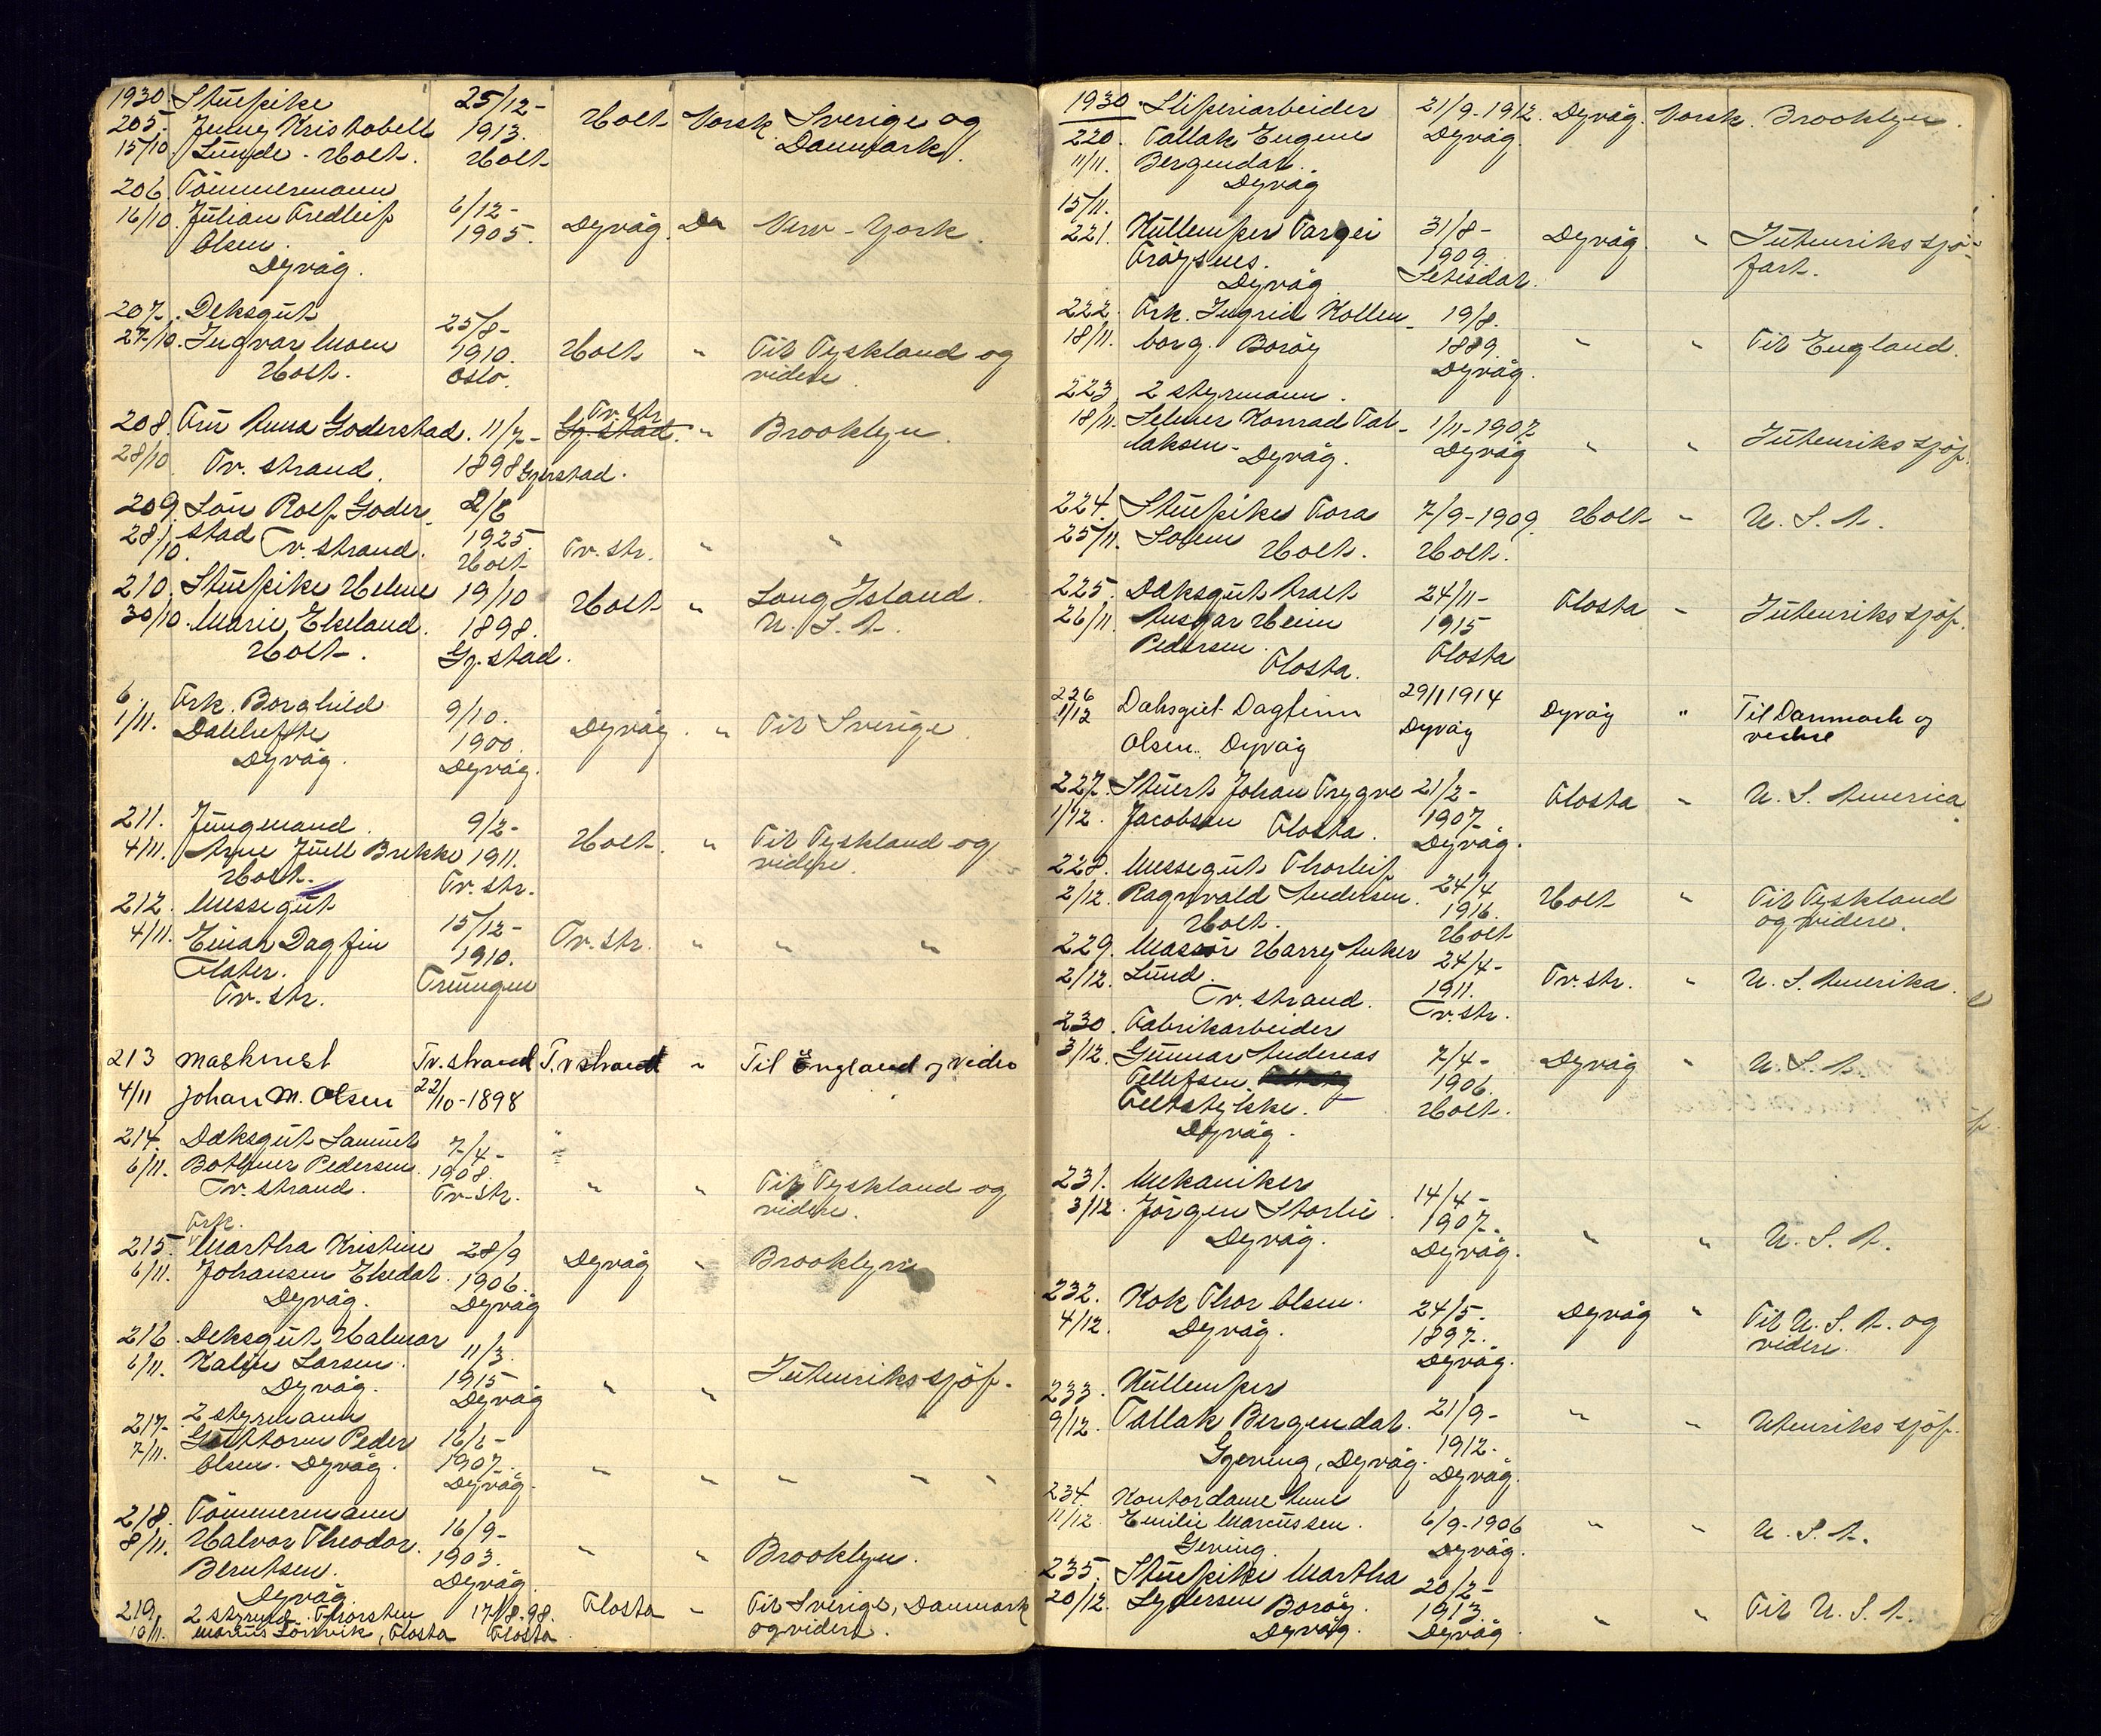 1930 Stuepike 25/12-
205. Jenny Kristobell 1913. Holt Norsk Sverige og
15/10 Lunde - Holt. Holt Danmark.
206 Tömmermann
16/10. Julian Fredleif 6/12- Dyvåg. Do New-York.
Olsen. 1905.
Dyvåg.
207. Deksgut 25/8-
27/10. Ingvar Moen 1910. Holt " Til Tyskland og
Holt. Oslo. videre.
208. Fru Anna Goderstad. 11/7- Tv. str. " Brooklyn.
28/10 Tv. strand. 1898 Gjerstad.
209. Sön Rolf Goder- 2/6
28/10. stad Tv. strand. 1925 Tv. str. " "
Holt
210. Stuepike Helene 19/10 Holt " Long Island.
30/10. Marie Ekeland. 1898. U. S. A.
Holt. Gj. stad.
6. Frk. Borghild 9/10.
1/11. 1900. Dyvåg. " Til Sverige.
Dyvåg. Dyvåg.
211. Jungmand. 9/2- Holt. " Til Tyskland og
4/11. Arne Juell Brekke 1911. videre.
Holt. Tv. str.
212. Messegut 15/12-
4/11. Einar Dagfin 1910. Tv. str. " " "
Flater. Treungen
Tv. str.
213 Maskinist Tv. strand T.v strand " Til England og videre
4/11 Johan M. Olsen 22/10-1898
214. Dæksgut Samuel 7/4- "
6/11. Bothner Pedersen. 1908. " " Til Tyskland og
Tv. strand. Tv-str. videre.
Frk.
215. Martha Kristine 28/9 Dyvåg " Brooklyn
6/11. Johansen Ekedal. 1906.
Dyvåg. Dyvåg
216. Deksgut Halmar 11/3.
6/11. Larsen. 1915 " " Utenriks sjöf.
Dyvåg. Dyvåg
217. 2 styrmann
7/11. Guttorm Peder 16/6-
Olsen. Dyvåg. 1907. " " " " "
Dyvåg.
218. Tömmermann 16/9-
8/11. Halvor Theodor. 1903. " " Brooklyn.
Berntsen. Dyvåg.
Dyvåg.
219. 2 styrmd. Thorsten 17/8.98. Flosta " Til Sverige, Danmark
10/11. Marius Flosta Flosta og videre.
1930. Sliperiarbeider 21/9-1912. Dyvåg. Norsk. Brooklyn.
220. Tallak Eugene Dyvåg.
11/11. Bergendal.
Dyvåg
15/11.
221. Hullemper Targei 31/8- Dyvåg. " Utenriks sjö-
Fröysnes. 1909. fart.
Dyvåg Setesdal.
222. Frk. Ingrid Kollen- 19/8.
18/11. borg. Boröy 1889. " " Til England.
Dyvåg.
223. 2 styrmann.
18/11. Selmer Konrad Tal- 1/11-1907 " " Utenriks sjöf.
laksen - Dyvåg. Dyvåg
224. Stuepike Tora 7/9-1909. Holt " U. S. A.
25/11. Holt. Holt.
225. Dæksgut 24/11- Flosta " Utenriks sjöf.
26/11. Ansgar Heim 1915
Pedersen. Flosta
Flosta.
226 Daksgut Dagfinn 29/1 1914 Dyvåg " Til Danmark og
1/12 Olsen. Dyvåg Dyvåg videre
227. Stuert Johan Trygve 21/2- Flosta " U. S. America.
1/12. Jacobsen Flosta. 1907.
Dyvåg.
228. Messegut Thorleif
2/12. Ragnvald Andersen. 24/4 1916. Holt " Til Tyskland
Holt. Holt og videre.
229. Massör Harry Anker 24/4-
2/12. Lund. 1911. Tv. str. " U. S. Amerika.
Tv. strand. Tv. str.
230. Fabrikarbeider
3/12. Gunnar Andreas 7/4- Dyvåg " U. S. A.
Tellefsen 1906.
Holt.
Dyvåg.
231. Mekaniker 14/4-
3/12. Jörgen Storlie. 1907. " " U. S. A.
Dyvåg. Dyvåg.
232. Kok Thor Olsen. 24/5- Dyvåg " Til U. S. A. og
4/12. Dyvåg. 1897. videre.
Dyvåg.
233. Hullemper
9/12. Tallak Bergendal. 21/9- " " Utenriks sjöf.
Gjeving, Dyvåg. 1912.
Dyvåg.
234. Kontordame Anne
11/12. Emilie Marcussen. 6/9-1906 " " U. S. A.
Gjeving. Dyvåg.
235. Stuepike Martha 20/2-
20/12. Lydersen Boröy. 1913. " " Til U. S. A.
Dyvåg. Dyvåg